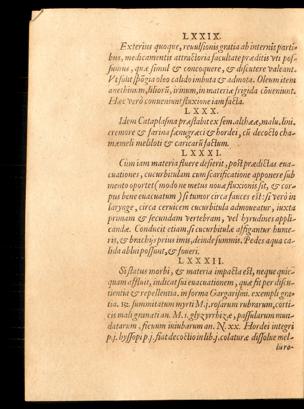 LXXIX.
Exterius quoque, reuulsionis gratia ab internis parti-
bus, medicamentis attractoria facultate præditis vti pos-
sumus, quæ simul & concoquere, & discutere valeant.
Vt sunt spōgia oleo calido imbuta & admota. Oleum item
anethinum, liliorū, irinum, in materia frigida cōueniunt.
Hæc verò conueniunt fluxione iam facta.
LXXX.
Idem Cataplasma præstabit ex sem. altheæ, malu. lini,
cremore & farina fœnugræci & hordei, cū decocto cha-
mæmeli meliloti & caricarū factum.
LXXXI.
Cùm iam materia fluere desierit, post prædictas eua-
cuationes, cucurbitulam cum scarificatione apponere sub
mento oportet (modo ne metus nouæ fluxionis sit, & cor-
pus bene euacuatum) si tumor circa fauces est: si verò in
larynge, circa ceruicem cucurbitula admoueatur, iuxta
primam & secundam vertebram, vel hyrudines appli-
candæ. Conducit etiam, si cucurbitulæ affigantur hume-
ris, & brachijs prius imis, deinde summis. Pedes aqua ca-
lida ablui possunt, & foueri.
LXXXII.
Si status morbi, & materia impacta est, neque quic-
quam affluit, indicat sui euacuationem, quæ fit per discu-
tientia & repellentia. in forma Gargarismi. exempli gra-
tia. ℞. summitatum myrti M.j. rosarum rubrarum, corti-
cis mali granati an. M.j. glyzyrrhizæ, passularum mun-
datarum, ficuum iniubarum an. N. xx. Hordei integri
p.j. hyssopi p.j. fiat decoctio in lib.j. colaturæ dissolue mel-